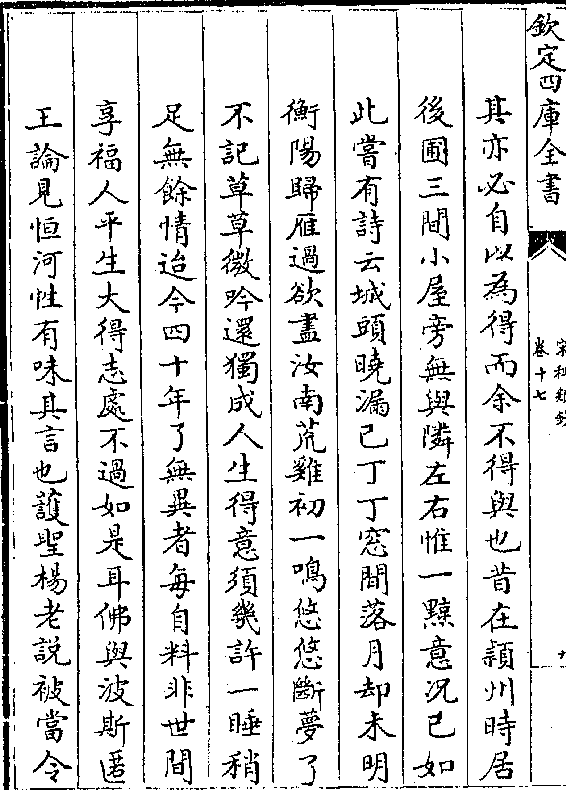 欽定四庫全書
卷十七
其亦必自以為得而余不得與也昔在潁州時居
後圃三間小屋旁無與隣左右惟一黥意况已如
此嘗有詩云城頭曉漏已丁丁窓間落月却未明
衡陽歸雁過欲盡汝南荒雞初一鳴悠悠斷夢了
不記草草微吟還獨成人生得意須幾許一睡稍
足無餘情迨今四十年了無異者每自料非世間
享福人平生大得志處不過如是耳佛與波斯匿
王論見恒河性有味其言也䕶聖楊老説被當令